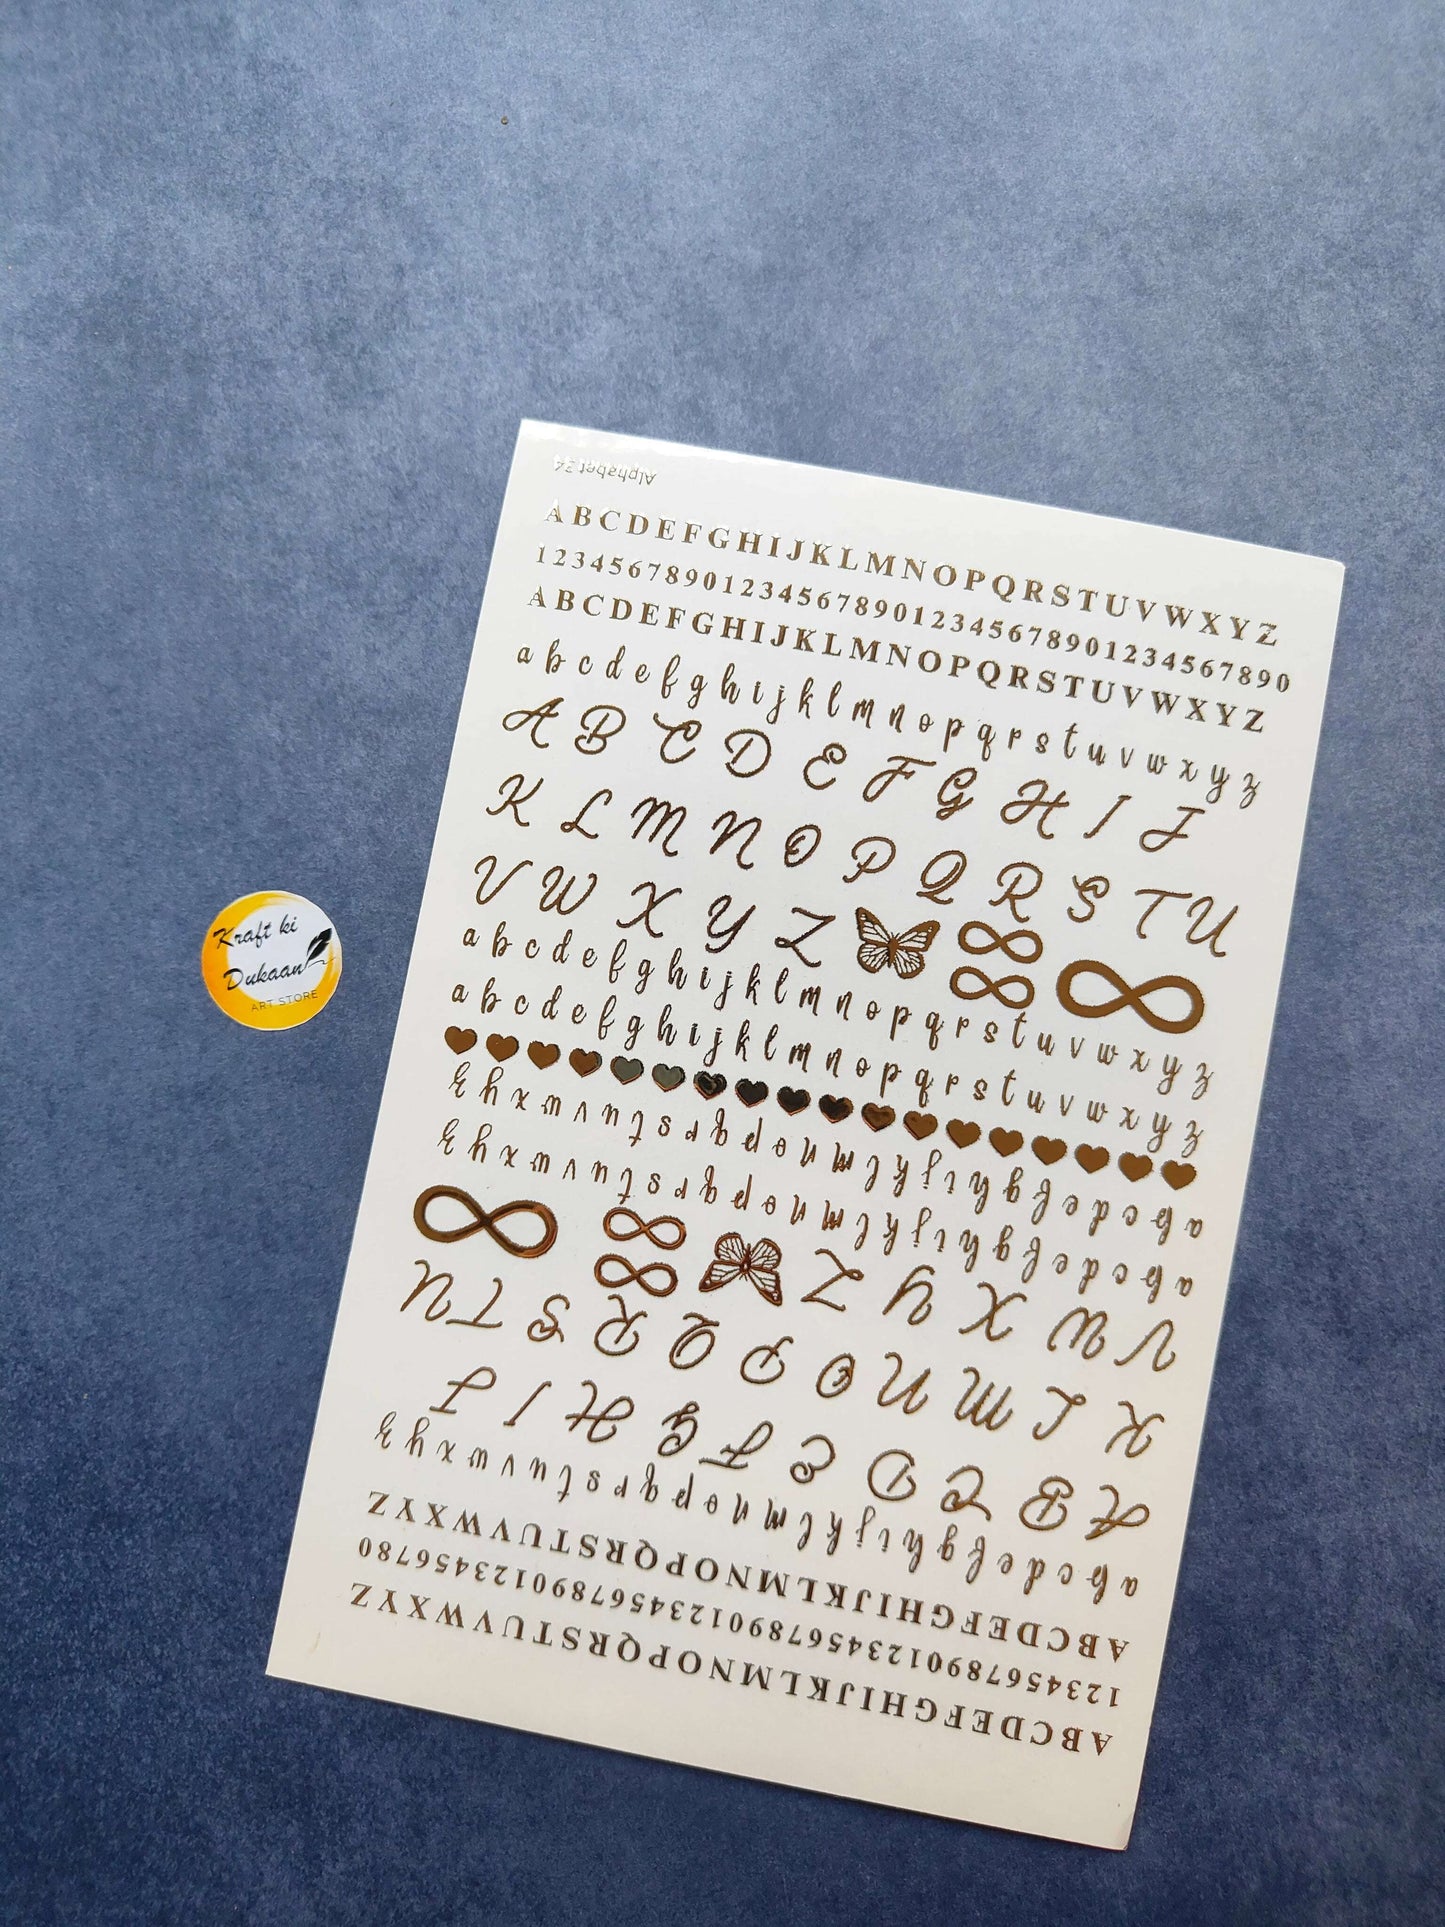 Alphabet 34
A B C D E F G H I J K L M N O P Q R S T U V W X Y Z
1 2 3 4 5 6 7 8 9 0 1 2 3 4 5 6 7 8 9 0 1 2 3 4 5 6 7 8 9 0 1 2 3 4 5 6 7 8 9 0
A B C D E F G H I J K L M N O P Q R S T U V W X Y Z
a b c d e f g h i j k l m n o p q r s t u v w x y z
A B C D E F G H I J
K L M N O P Q R S T U
V W X Y Z
a b c d e f g h i j k l m n o p q r s t u v w x y z
a b c d e f g h i j k l m n o p q r s t u v w x y z
a b c d e f g h i j k l m n o p q r s t u v w x y z
a b c d e f g h i j k l m n o p q r s t u v w x y z
V W X Y Z
K L M N O P Q R S T U
A B C D E F G H I J
a b c d e f g h i j k l m n o p q r s t u v w x y z
A B C D E F G H I J K L M N O P Q R S T U V W X Y Z
1 2 3 4 5 6 7 8 9 0 1 2 3 4 5 6 7 8 9 0 1 2 3 4 5 6 7 8 9 0 1 2 3 4 5 6 7 8 0
A B C D E F G H I J K L M N O P Q R S T U V W X Y Z
Kraft ki
Dukaan
ART STORE